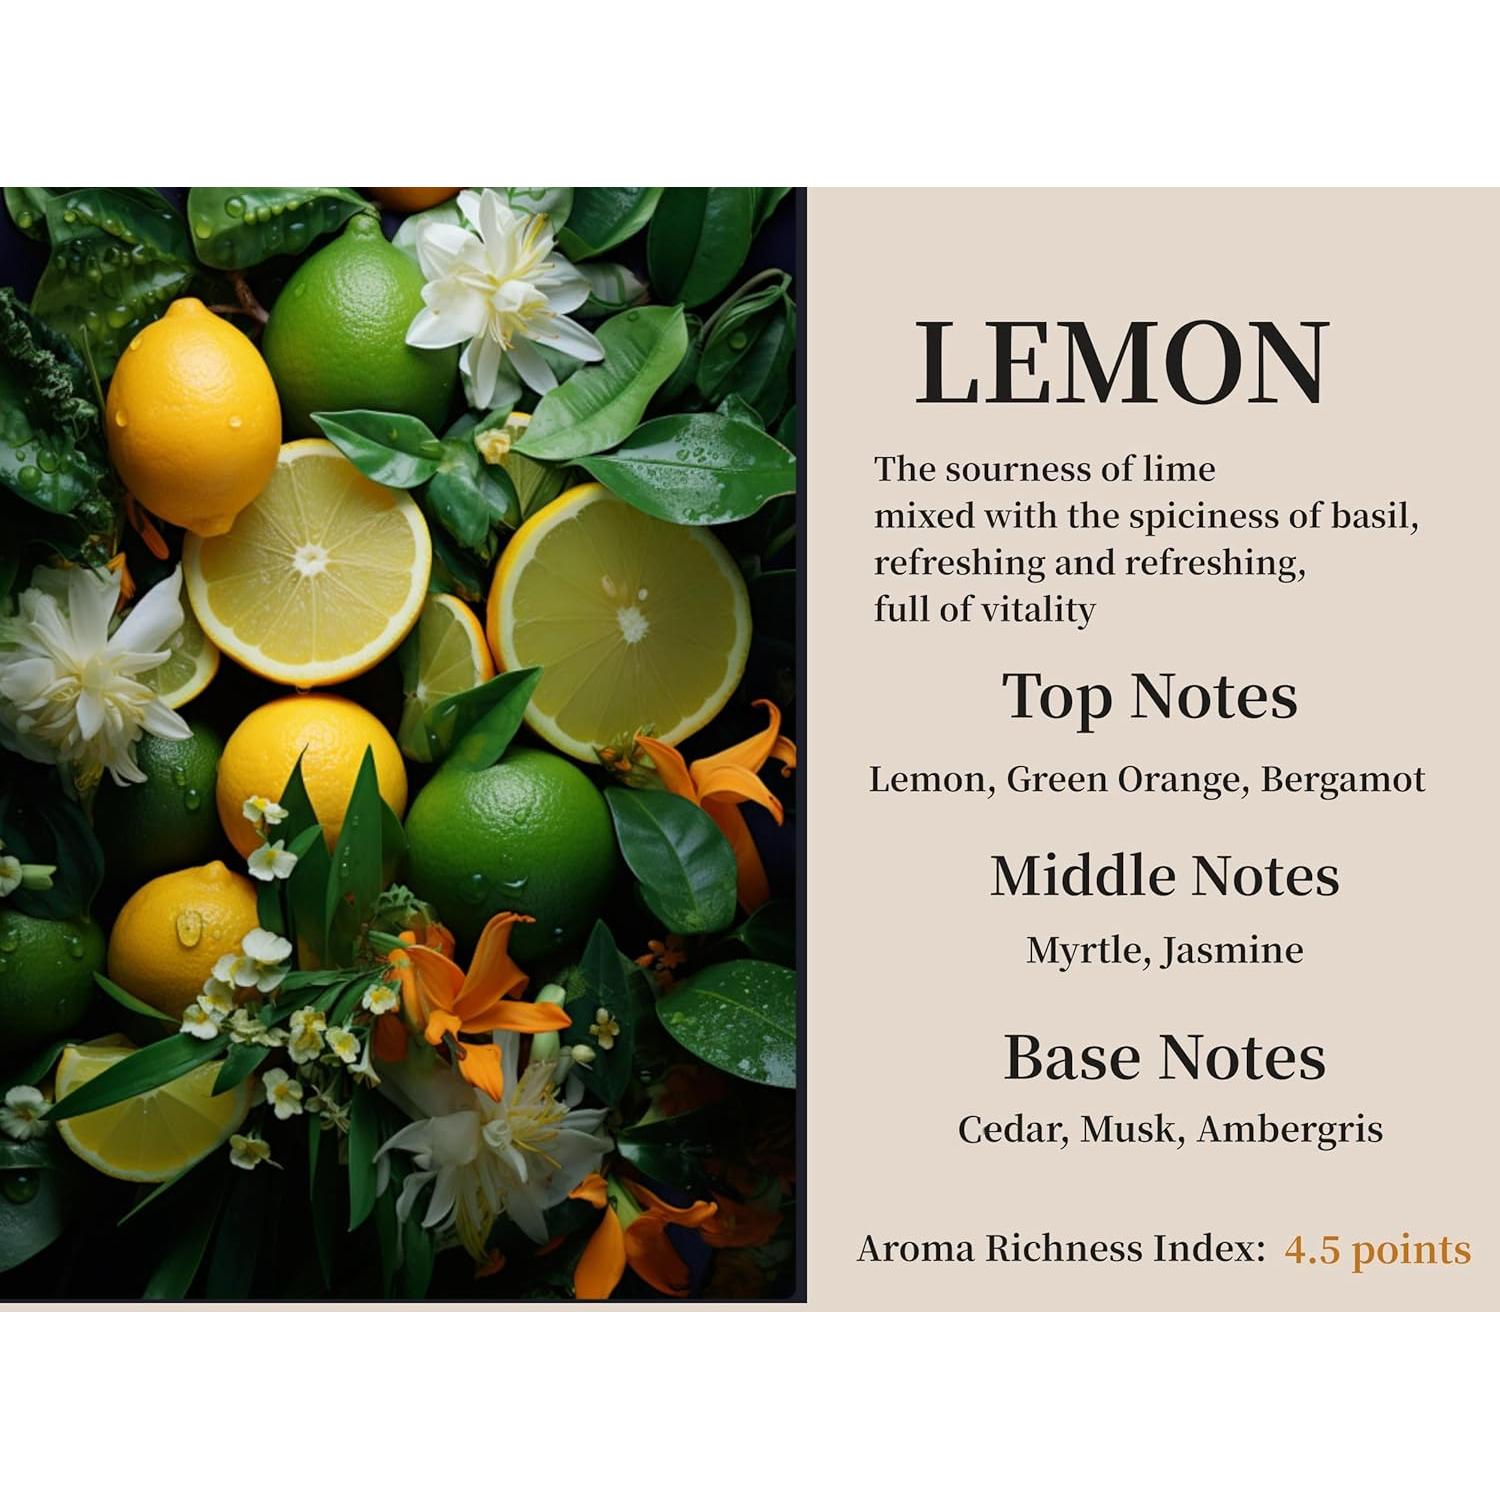 LEMON
The sourness of lime
mixed with the spiciness of basil,
refreshing and refreshing,
full of vitality
Top Notes
Lemon, Green Orange, Bergamot
Middle Notes
Myrtle, Jasmine
Base Notes
Cedar, Musk, Ambergris
Aroma Richness Index: 4.5 points